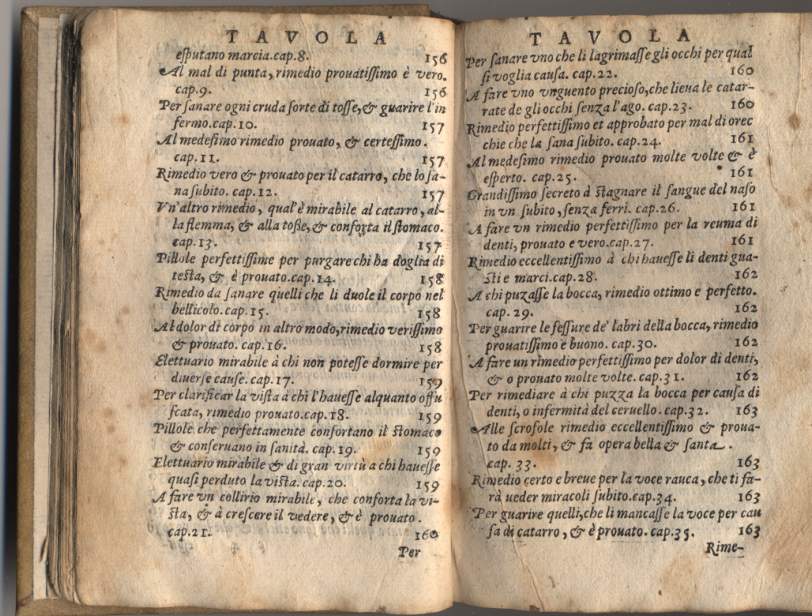 TAVOLA
eſputano marcia.cap.8. 156
Al mal di punta, rimedio prouatiſſimo è vero.
cap.9. 156
Per ſanare ogni cruda ſorte di toſſe,& guarire l'in
fermo.cap.10. 157
Al medeſimo rimedio prouato, & certeſſimo.
cap.11. 157
Rimedio vero & prouato per il catarro, che lo ſa-
na ſubito. cap.12. 157
Vn'altro rimedio, qual'è mirabile al catarro, al-
la flemma, & alla toße, & conforta il ſtomaco.
cap.13. 157
Pillole perfettiſſime per purgare chi ha doglia di
teſta, & è prouato.cap.14. 158
Rimedio da ſanare quelli che li duole il corpo nel
bellicolo.cap.15. 158
Al dolor di corpo in altro modo,rimedio veriſſimo
& prouato. cap.16. 158
Elettuario mirabile à chi non poteſſe dormire per
diuerſe cauſe.cap.17. 159
Per clarificar la viſta à chi l'haueſſe alquanto offu
ſcata, rimedio prouato.cap.18. 159
Pillole che perfettamente confortano il ſtomaco
& conſeruano in ſanità. cap.19. 159
Elettuario mirabile & di gran virtù a chi haueſſe
quaſi perduto la viſta. cap.20. 159
A fare vn collirio mirabile, che conforta la vi-
ſta, & à creſcere il vedere, & è prouato.
cap.21. 160
Per
TAVOLA
Per ſanare vno che li lagrimaſſe gli occhi per qual
ſi voglia cauſa. cap.22. 160
A fare vno vnguento precioſo,che lieua le catar-
rate de gli occhi ſenza l'ago. cap.23. 160
Rimedio perfettiſſimo et approbato per mal di orec
chie che la ſana ſubito. cap.24. 161
Al medeſimo rimedio prouato molte volte & è
eſperto. cap.25. 161
Grandiſſimo ſecreto à ſtagnare il ſangue del naſo
in vn ſubito, ſenza ferri. cap.26. 161
A fare vn rimedio perfettiſſimo per la reuma di
denti, prouato e vero.cap.27. 161
Rimedio eccellentiſſimo à chi haueſſe li denti gua-
ſti e marci.cap.28. 162
A chi puzaſſe la bocca, rimedio ottimo e perfetto.
cap. 29. 162
Per guarire le feſſure de' labri della bocca, rimedio
prouatiſſimo e buono. cap.30. 162
A fare un rimedio perfettiſſimo per dolor di denti,
& o prouato molte volte. cap.31. 162
Per rimediare à chi puzza la bocca per cauſa di
denti, o infermità del ceruello. cap.32. 163
Alle ſcrofole rimedio eccellentiſſimo & proua-
to da molti, & fa opera bella & ſanta.
cap. 33. 163
Rimedio certo e breue per la voce rauca, che ti fa-
rà ueder miracoli ſubito.cap.34. 163
Per guarire quelli,che li mancaſſe la voce per cau
ſa di catarro, & è prouato. cap.35. 163
Rime-